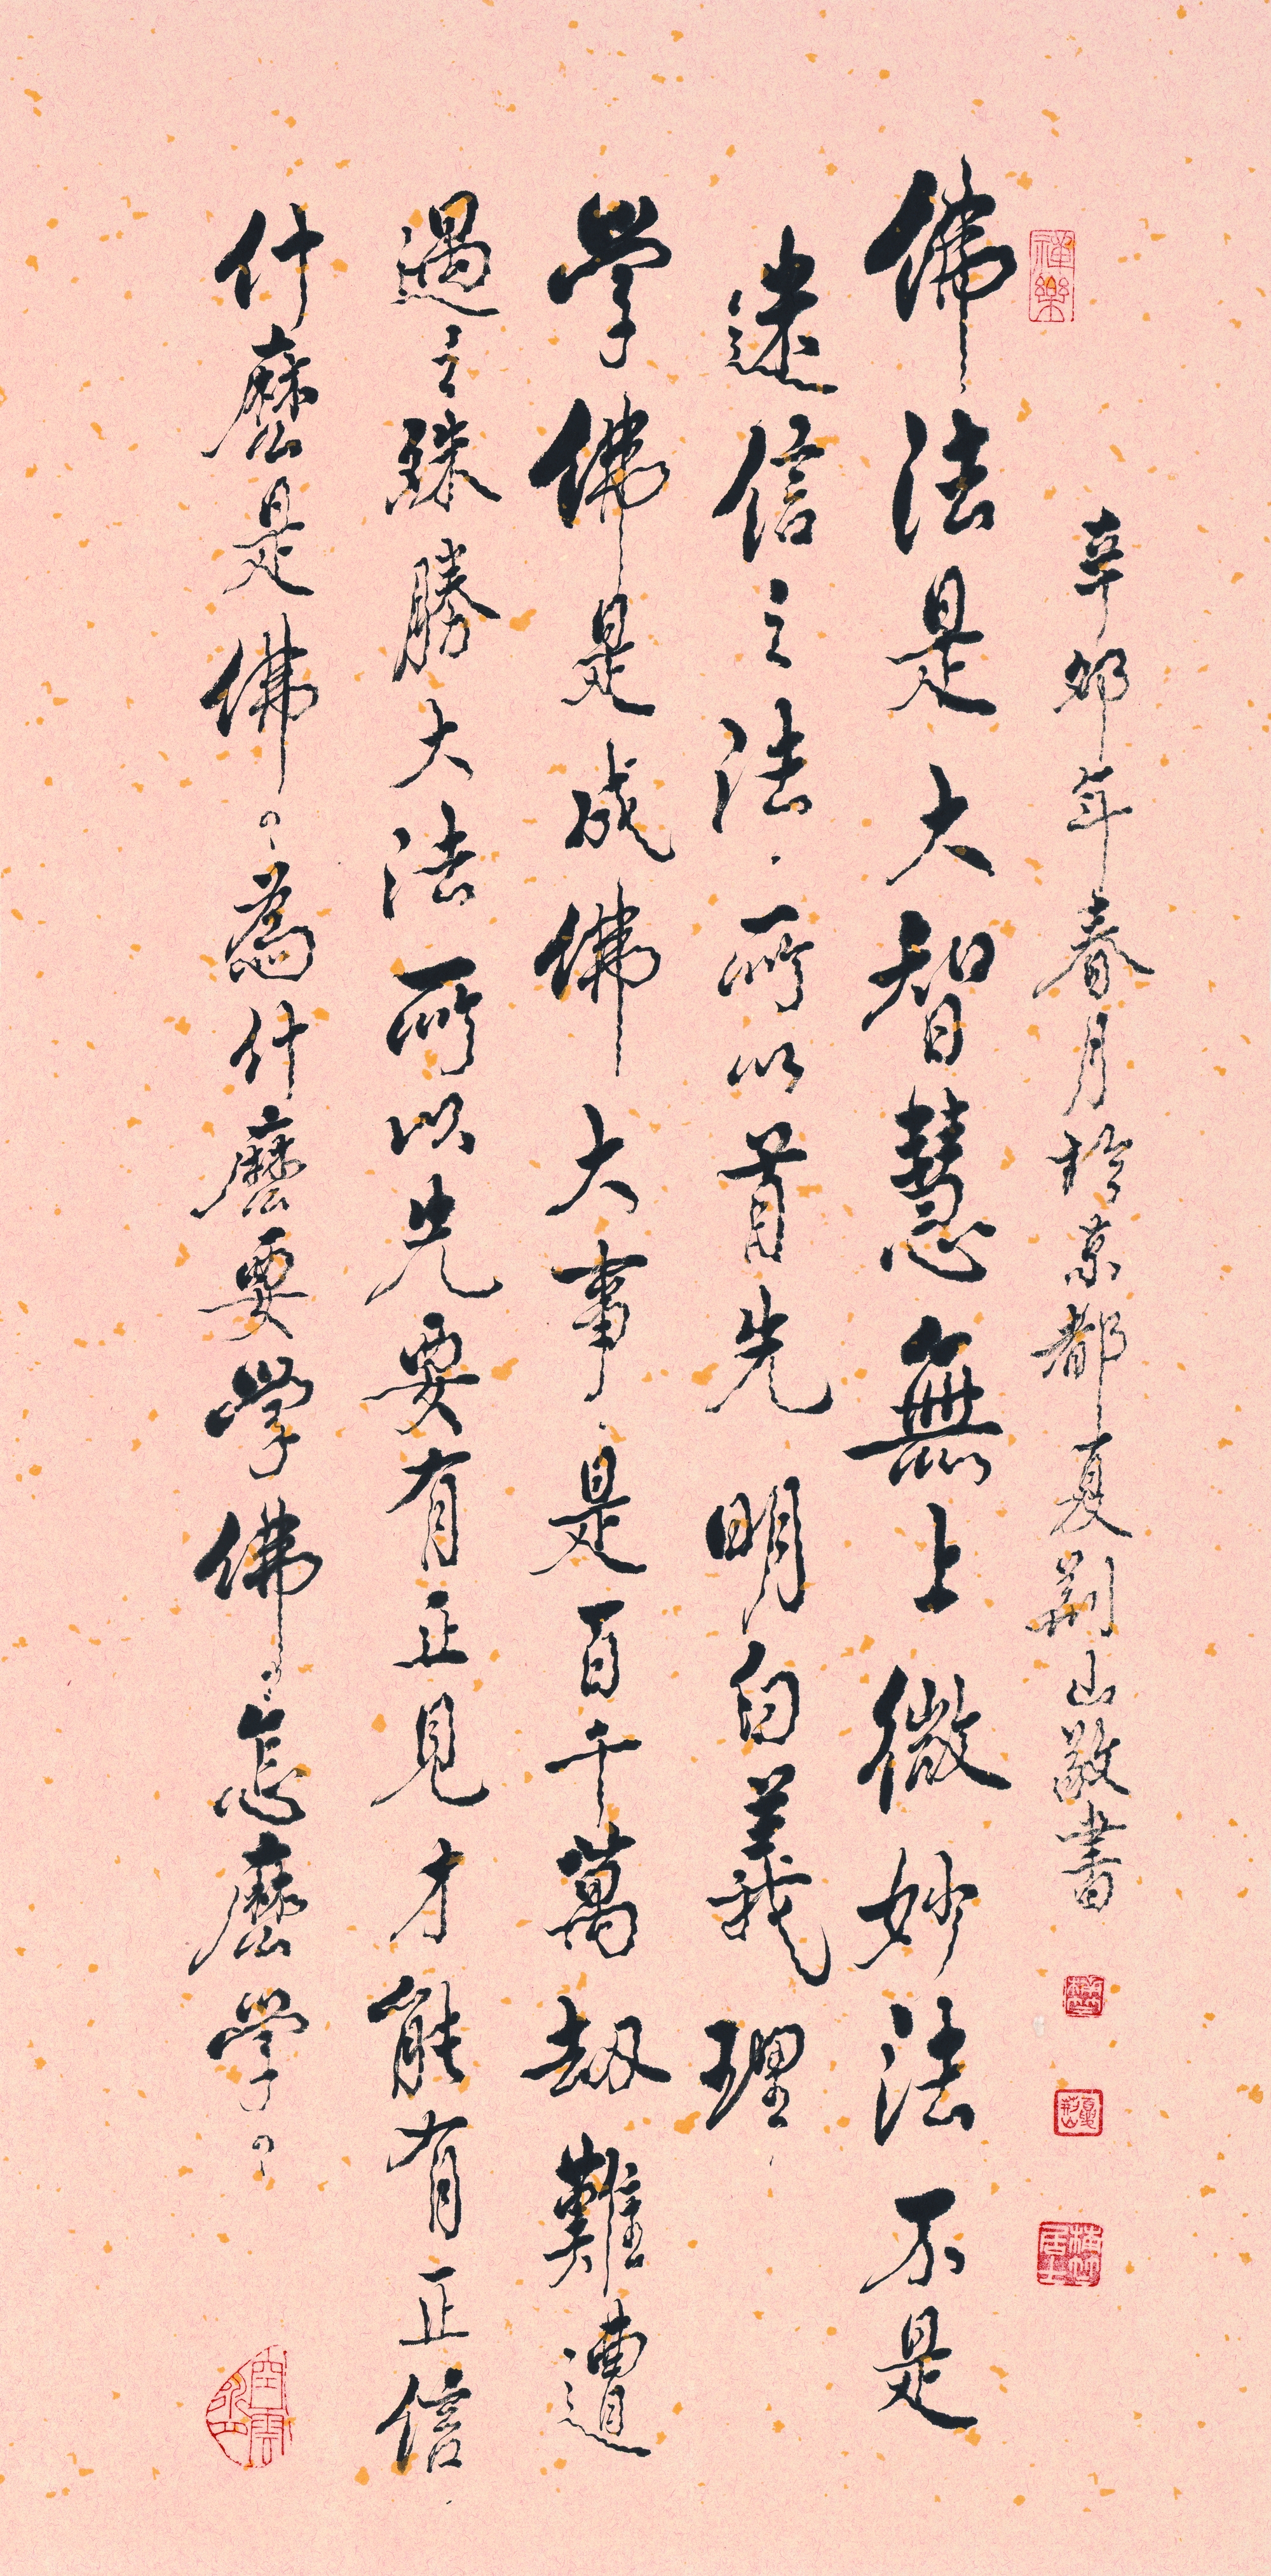 禪樂
辛卯年春月於京都夏荊山敬書
佛法是大智慧無上微妙法不是
迷信之法，所以首先明白義理，
學佛是成佛大事，是百千萬劫難遭
遇之殊勝大法所以先要有正見才能有正信，
什麼是佛。為什麼要學佛，怎麼學。
夏荊山